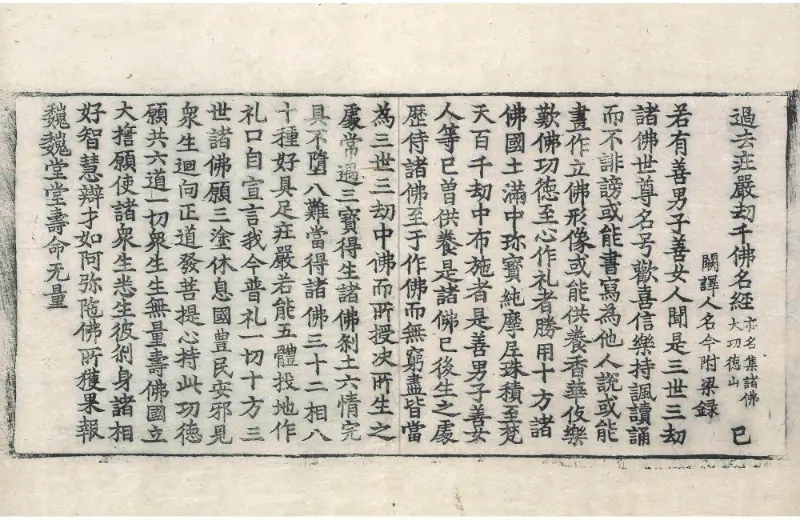 過去庄嚴劫千佛名經 亦名集諸佛大功德山 已
闕譯人名今附梁錄
若有善男子善女人聞是三世三劫
諸佛世尊名号歡喜信樂持諷讀誦
而不誹謗或能書寫為他人說或能
畫作立佛形像或能供養香華伎樂
歎佛功德至心作礼者勝用十方諸
佛國土滿中珎寶純摩尼珠積至梵
天百千劫中布施者是善男子善女
人等已曾供養是諸佛已後生之處
歷侍諸佛至于作佛而無窮盡皆當
為三世三劫中佛而所授决所生之
處常遇三寶得生諸佛剎土六情完
具不墮八難當得諸佛三十二相八
十種好具足庄嚴若能五體投地作
礼口自宣言我今普礼一切十方三
世諸佛願三塗休息國豊民安邪見
衆生迴向正道發菩提心持此功德
願共六道一切衆生生無量壽佛國立
大誓願使諸衆生悉生彼剎身諸相
好智慧辯才如阿弥陁佛所獲果報
巍巍堂堂壽命无量